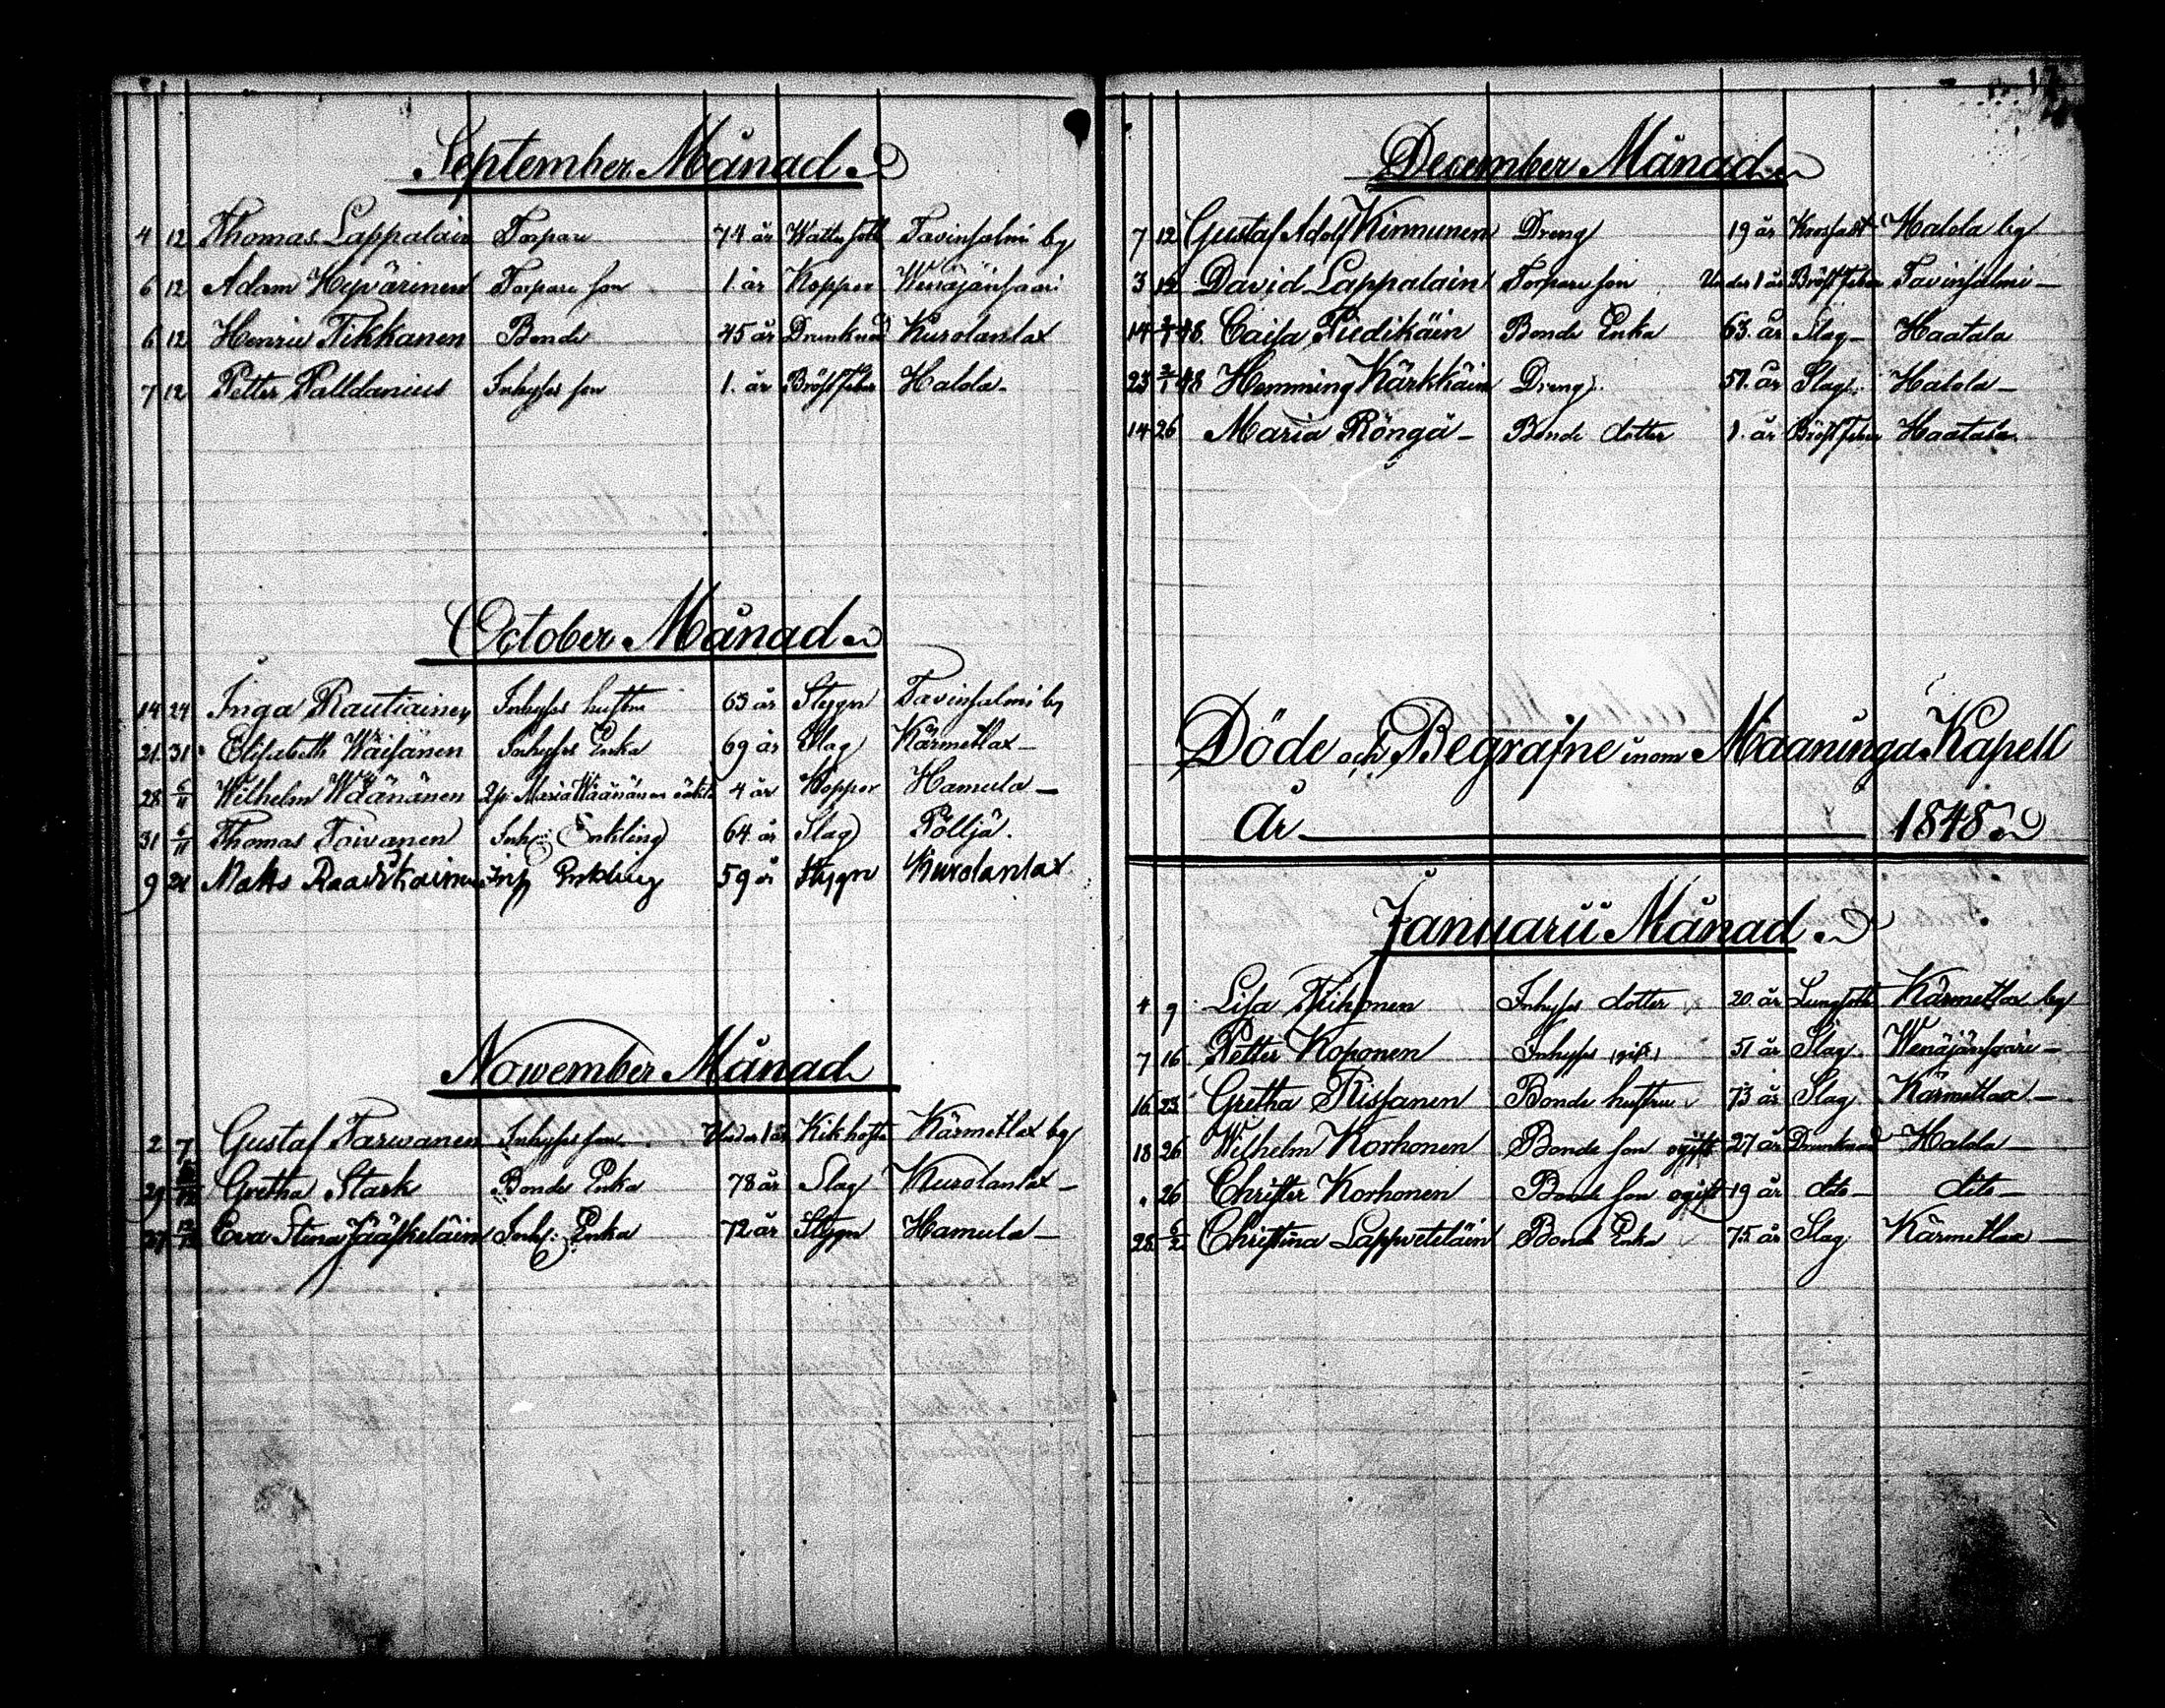 September Månad
4 12 Thomas Lappalain Torpare 74 år Wattusott Tavinsalmi by
6 12 Adam Hyvärinen Torpare son 1. år Koppor Wenäjänsaari
6 12 Henric Tikkanen Bonde 45 år Drunknad Kurolanlax
7 12 Petter Palldanius Inhyses son 1. år Bröstfeber Halola
October Månad
14 24 Inga Rautiainen Inhyses hustru 63 år Stygn Tavinsalmi by
21 31 Elisabeth Wäisänen Inhyses Enka 69 år Slag Kärmetlax
28 6/11 Wilhelm Wäänänen Maria Wäänänens oäkta 4 år Koppor Hamula
31 6/11 Thomas Toivanen Inh: Enkling 64 år Slag Pölljä.
9 24 Mats Raatikainen Inh Enkling 59 år Stygn Kurolanlax
November Månad
2 7 Gustaf Tarvanen Inhyses son Under 1 år Kikhosta Kärmetlax by
29 12/12 Gretha Stark Bonde Enka 78 år Slag Kurolanlax
27 12/12 Eva Stina Jääskeläin Inh: Enka 72 år Stygn Hamula
17
December Månad
7 12 Gustaf Adolf Kinnunen Dreng 19 år Halola by
3 12 David Lappalain Torpare son Under 1 år Bröstfeber Tavinsalmi
14 2/1 48. Caisa Tiedikäin Bonde Enka 63. år Slag Haatala
23 2/1 48 Hemming Kärkkäin Dreng 57. år Slag Halola
14 26 Maria Röngä Bonde dotter 1. år Bröstfeber Haatala
Döde och Begrafne inom Maaninga Kapell
År 1848
Januarii Månad
4 9 Lisa Tiihonen Inhyses dotter 20. år Lungsott Kärmetlax by
7 16 Petter Koponen Inhyses (gift) 51 år Slag Wenäjänsaari
16 23 Gretha Rissanen Bonde hustru 73 år Slag Kärmetlax
18 26 Wilhelm Korhonen Bonde son ogift 27 år Drunknad Halola
" 26 Christer Korhonen Bonde son ogift 19 år dito dito
28 6/2 Christina Lappveteläin Bonde Enka 75 år Slag Kärmetlax